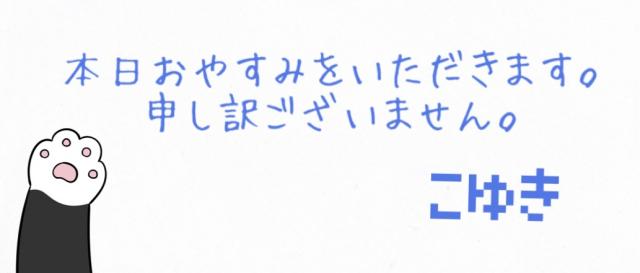 本日おやすみをいただきます。
申し訳ございません。
こゆき